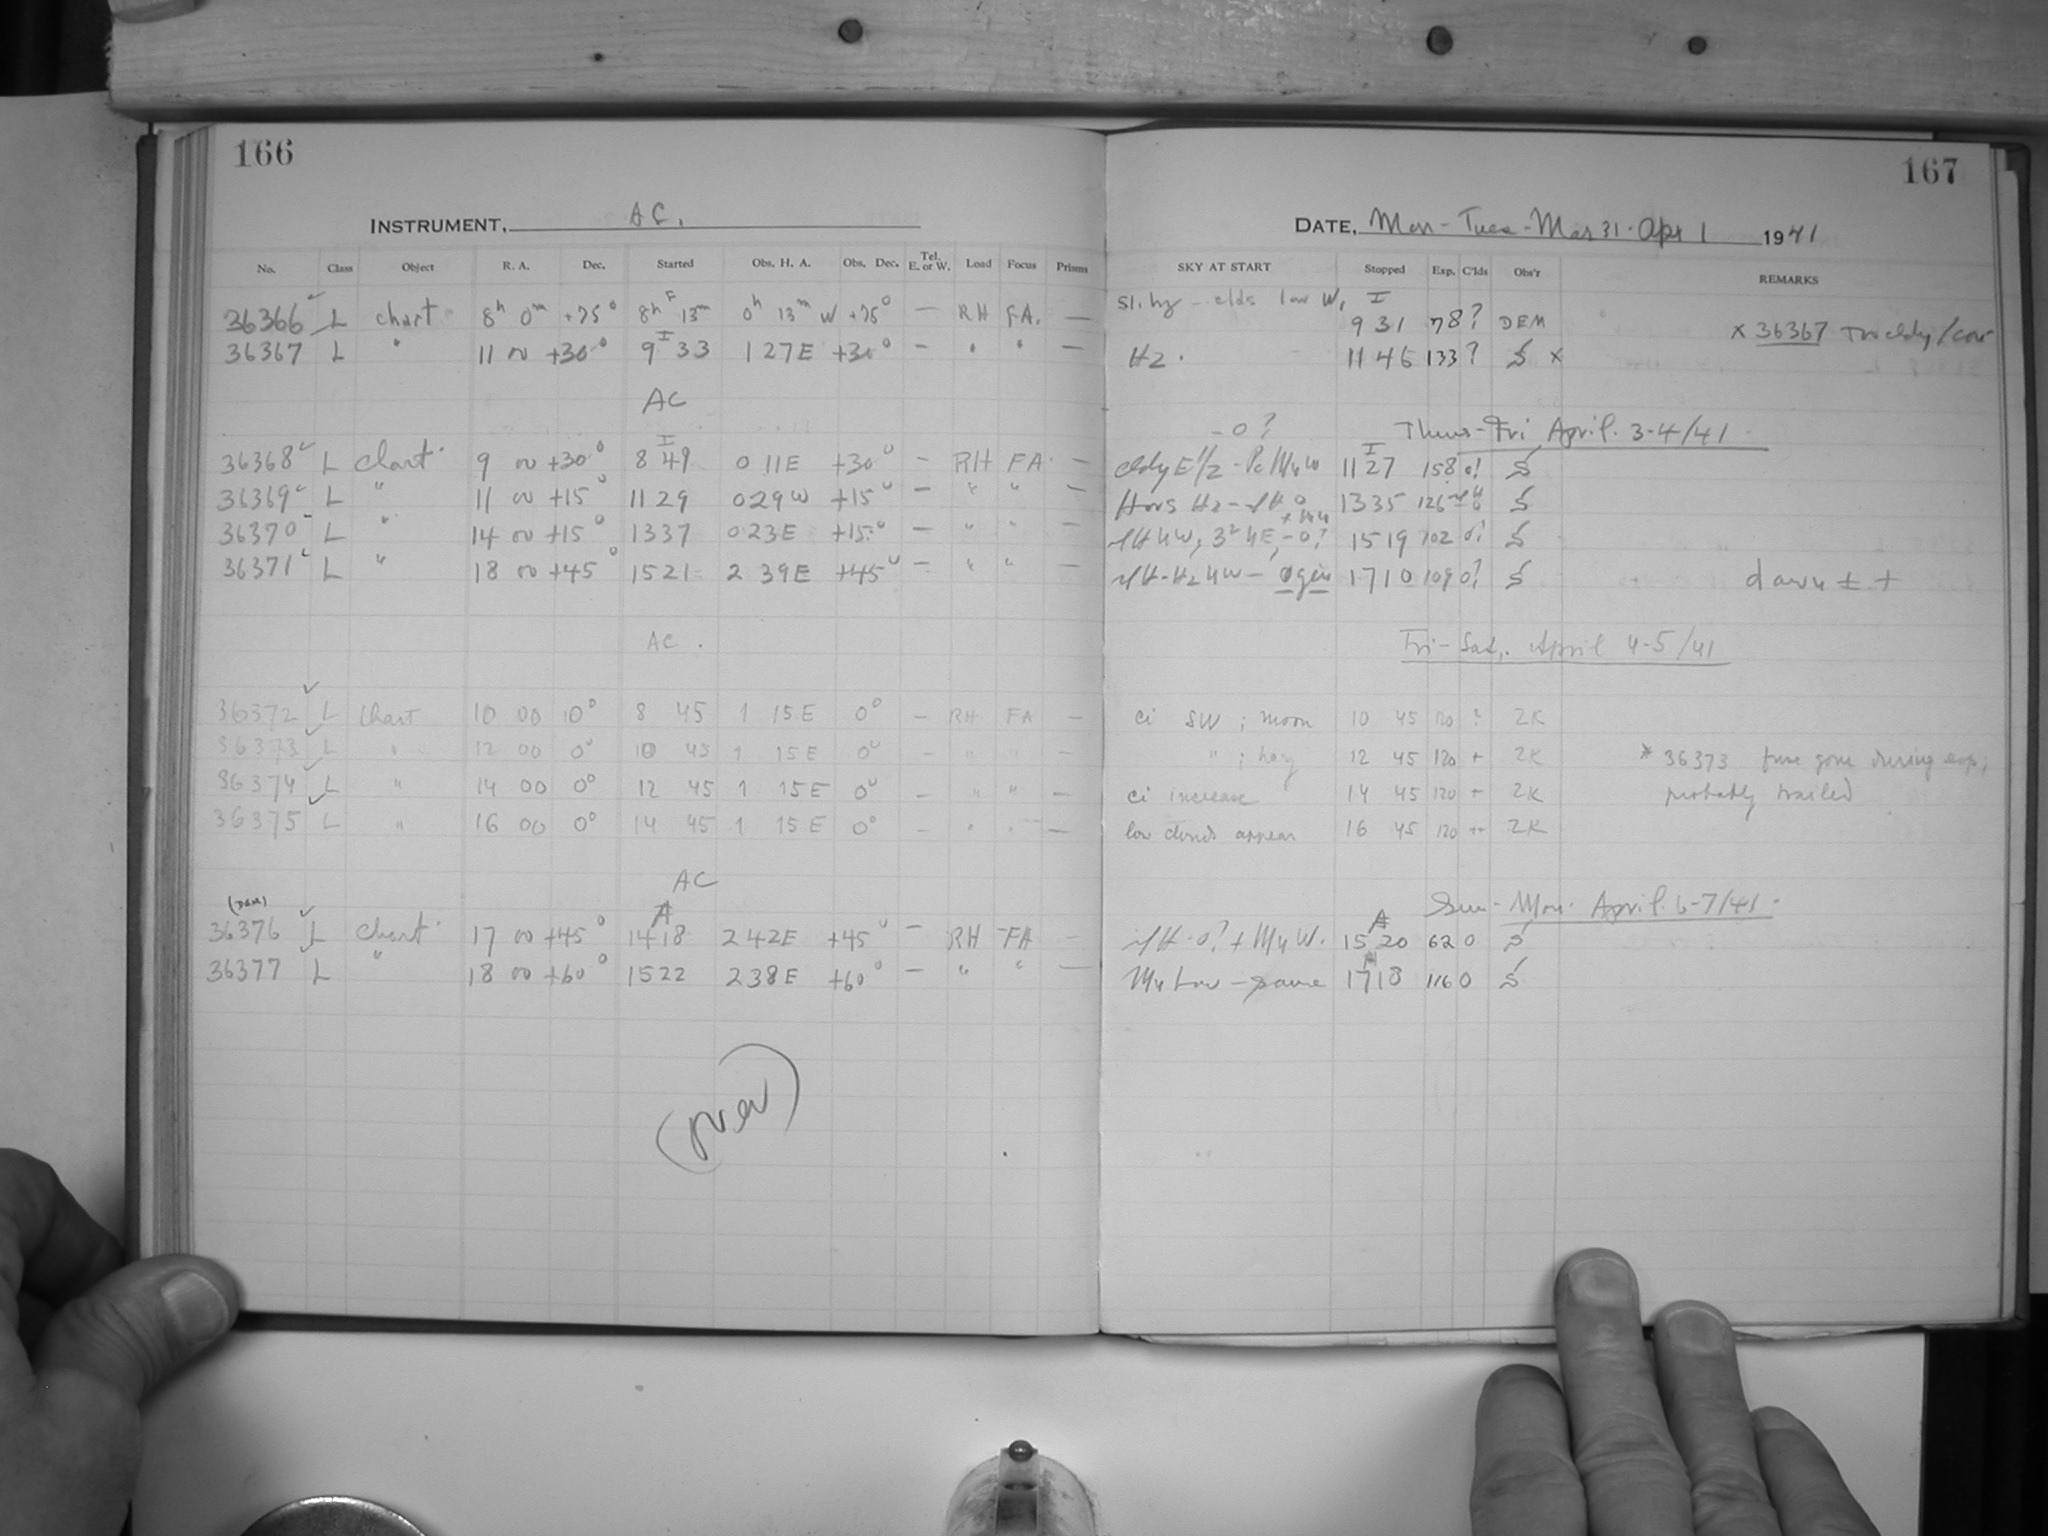 166
INSTRUMENT, AC.
No. Class Object R. A. Dec. Started Obs. H. A. Obs. Dec. Tel. E. or W. Load Focus Prisms
36366 L chart 8h 0m +75° 8h 13m 0h 13m W +75° — RH FA. —
36367 L " 11 00 +30° 9 33 1 27E +30° — " " —
AC
36368 L Chart 9 00 +30° 8 49 0 11E +30° — RH FA —
36369 L " 11 00 +15° 11 29 0 29W +15° — " " —
36370 L " 14 00 +15° 13 37 0 23E +15° — " " —
36371 L " 18 00 +45° 15 21 2 39E +45° — " " —
AC.
36372 L Chart 10 00 0° 8 45 1 15E 0° — RH FA —
36373 L " 12 00 0° 10 45 1 15E 0° — " " —
36374 L " 14 00 0° 12 45 1 15E 0° — " " —
36375 L " 16 00 0° 14 45 1 15E 0° — " " —
AC
(DEM)
36376 L Chart 17 00 +45° 14 18 2 42E +45° — RH FA —
36377 L " 18 00 +60° 15 22 2 38E +60° — " " —
(over)
167
DATE, Mon-Tues-Mar 31-Apr 1 1941
SKY AT START Stopped Exp. C'lds Obs'r REMARKS
Sl. hz - clds low W, I
9 31 78 ? DEM
x 36367
Hz. 11 46 133 ? S x
-0? Thurs-Fri April 3-4/41
cldy E 1/2 - 11 27 158 0? S
Hz 13 35 126 S
15 19 102 0? S
17 10 109 0? S dawn ± +
Fri-Sat, April 4-5/41
ci SW ; moon 10 45 120 ? ZK
" ; hazy 12 45 120 + ZK * 36373 fuse gone during exp;
ci increase 14 45 120 + ZK probably trailed
low clouds appear 16 45 120 ++ ZK
Sun-Mon. April 6-7/41
0? + W. 15 20 62 0 S
low - same 17 18 116 0 S